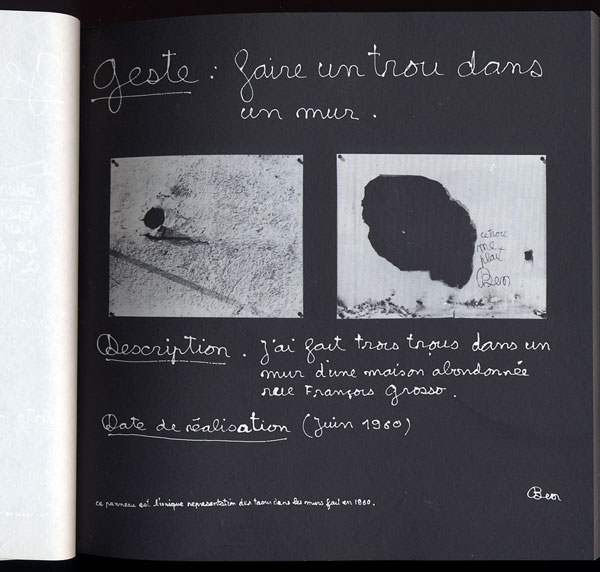 geste : faire un trou dans
un mur.
ce trou
me
plait
Ben
Description. J'ai fait trois trous dans un
mur d'une maison abondonnée
rue François Grosso.
Date de réalisation (Juin 1960)
Ben
ce panneau est l'unique representation des trous dans les murs fait en 1960.